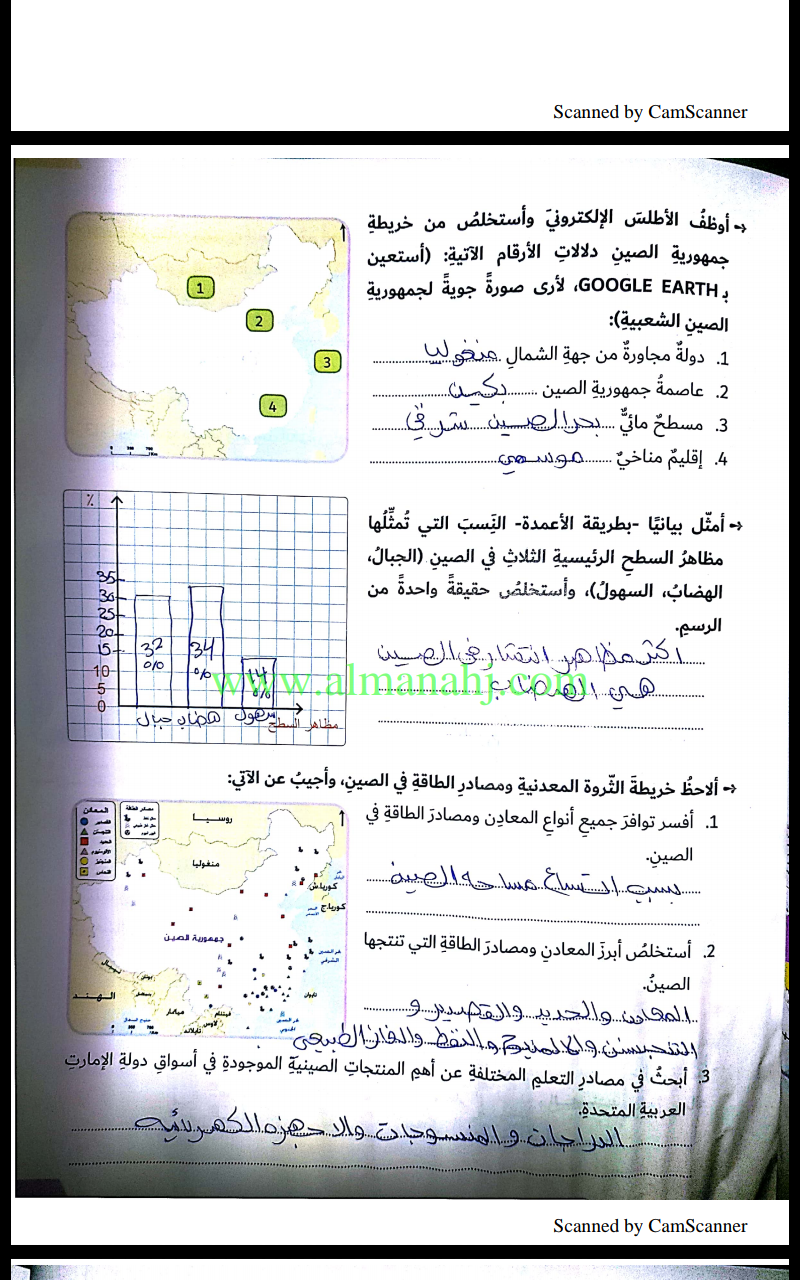 Scanned by CamScanner
أوظفُ الأطلسَ الإلكترونيَ وأستخلصُ من خريطةِ
جمهوريةِ الصينِ دلالاتِ الأرقام الآتيةِ: (أستعين
بـ GOOGLE EARTH، لأرى صورةً جويةً لجمهوريةِ
الصينِ الشعبيةِ):
1. دولةٌ مجاورةٌ من جهةِ الشمالِ منغوليا
2. عاصمةُ جمهوريةِ الصين بكين
3. مسطحٌ مائيٌّ بحر الصين شرقي
4. إقليمٌ مناخيٌ موسمي
1
2
3
4
أمثّل بيانيًا -بطريقة الأعمدة- النَسبَ التي تُمثِّلُها
مظاهرُ السطحِ الرئيسيةِ الثلاثِ في الصينِ (الجبالُ،
الهضابُ، السهولُ)، وأستخلصُ حقيقةً واحدةً من
الرسمِ.
اكثر مظاهر انتشار في الصين
هي الهضاب
%
35
30
25
20
15
10
5
0
32 %
34 %
14 %
جبال هضاب سهول
مظاهر السطح
www.almanahj.com
ألاحظُ خريطةَ الثّروة المعدنيةِ ومصادرِ الطاقةِ في الصينِ، وأجيبُ عن الآتي:
1. أفسر توافرَ جميعِ أنواعِ المعادِن ومصادرَ الطاقةِ في
الصينِ.
بسبب اتساع مساحه الصين
2. أستخلصُ أبرزَ المعادنِ ومصادرَ الطاقةِ التي تنتجها
الصينُ.
المعادن والحديد والقصدير و
التنجستن والالمنيوم والنفط والغاز الطبيعي
3. أبحثُ في مصادرِ التعلمِ المختلفةِ عن أهمِ المنتجاتِ الصينيةِ الموجودةِ في أسواقِ دولةِ الإماراتِ
العربيةِ المتحدةِ.
الدراجات و المنسوجات والاجهزه الكهربائيه
المعادن
مصادر الطاقة
روسيا
منغوليا
كوريا ش
كوريا ج
جمهورية الصين
نيبال
الهند
ميانمار
لاوس
فيتنام
تايلاند
تايوان
Scanned by CamScanner